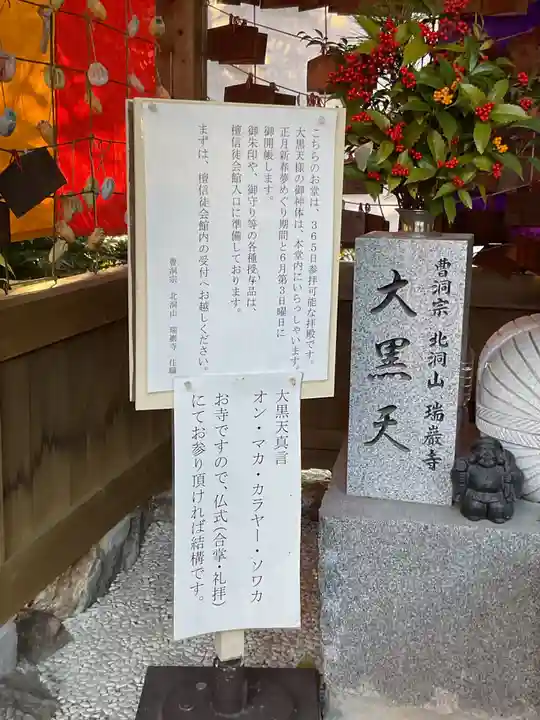 こちらのお堂は、365日参拝可能な拝殿です。
大黒天様の御神体は、本堂内にいらっしゃいます。
正月新春夢めぐり期間と6月第3日曜日に
御開帳します。
御朱印や、御守り等の各種授与品は、
檀信徒会館入口に準備しております。
まずは、檀信徒会館内の受付へお越しください。
曹洞宗 北洞山 瑞巌寺 住職
大黒天真言
オン・マカ・カラヤー・ソワカ
お寺ですので、仏式(合掌・礼拝)
にてお参り頂ければ結構です。
曹洞宗 北洞山 瑞巌寺
大黒天